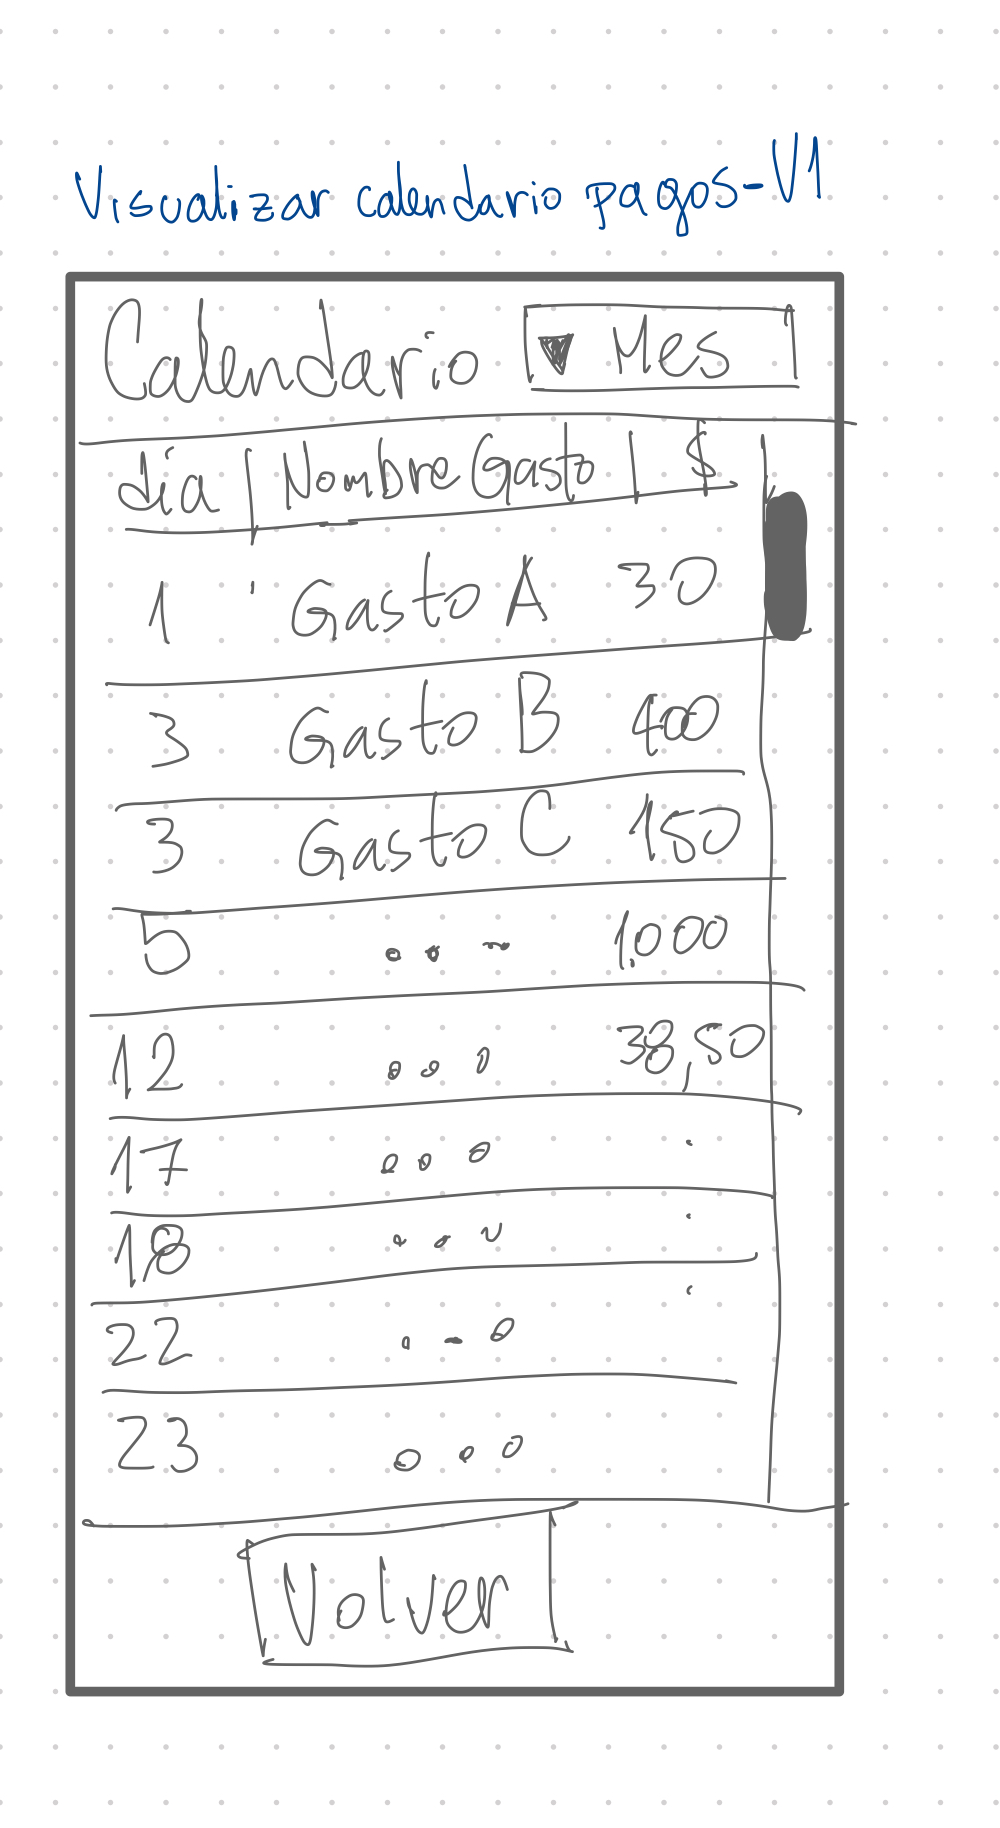 Visualizar calendario pagos-V1
Calendario ▼ Mes
día | Nombre Gasto | $
1 Gasto A 30
3 Gasto B 400
3 Gasto C 150
5 ... 1.000
12 ... 38,50
17 ... .
18 ... .
22 ... .
23 ...
Volver